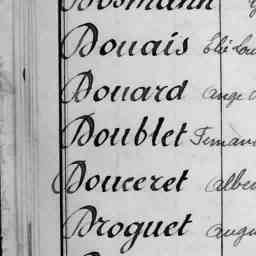 Douais Elie
Douard Ange
Doublet Fernand
Douceret Albe
Droguet Augu